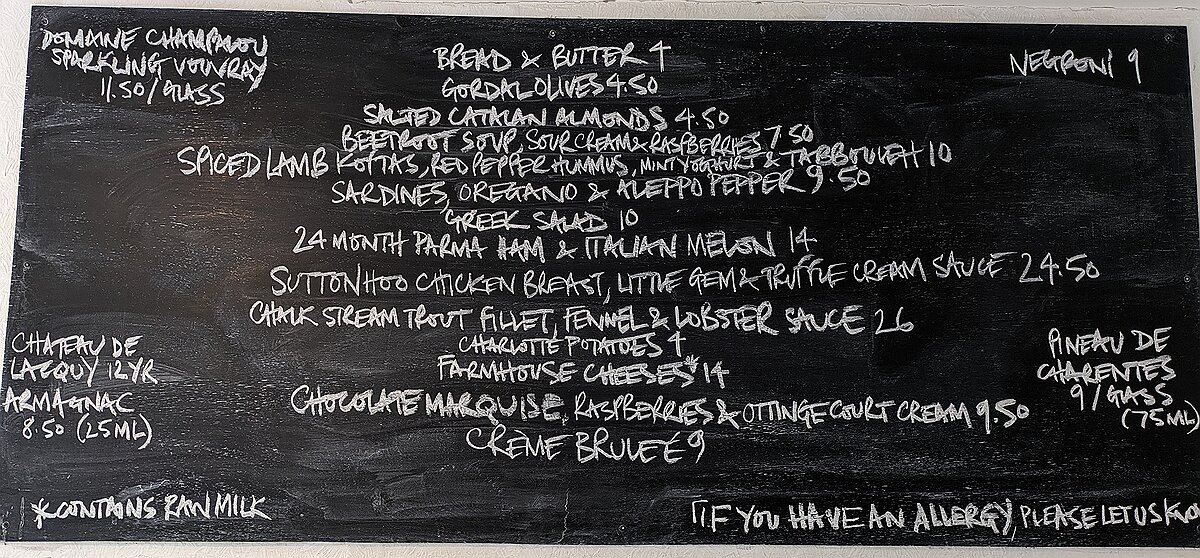 DOMAINE CHAMPALOU
SPARKLING VOUVRAY
11.50/GLASS
NEGRONI 9
BREAD & BUTTER 4
GORDAL OLIVES 4.50
SALTED CATALAN ALMONDS 4.50
BEETROOT SOUP, SOUR CREAM & RASPBERRIES 7.50
SPICED LAMB KOFTAS, RED PEPPER HUMMUS, MINT YOGHURT & TABBOULEH 10
SARDINES, OREGANO & ALEPPO PEPPER 9.50
GREEK SALAD 10
24 MONTH PARMA HAM & ITALIAN MELON 14
SUTTON HOO CHICKEN BREAST, LITTLE GEM & TRUFFLE CREAM SAUCE 24.50
CHALK STREAM TROUT FILLET, FENNEL & LOBSTER SAUCE 26
CHARLOTTE POTATOES 4
FARMHOUSE CHEESES* 14
CHOCOLATE MARQUISE, RASPBERRIES & OTTINGE COURT CREAM 9.50
CRÈME BRULEÉ 9
CHATEAU DE
LACQUY 12YR
ARMAGNAC
8.50 (25ML)
PINEAU DE
CHARENTES
9/GASS
(75ML)
*CONTAINS RAW MILK
IF YOU HAVE AN ALLERGY, PLEASE LET US